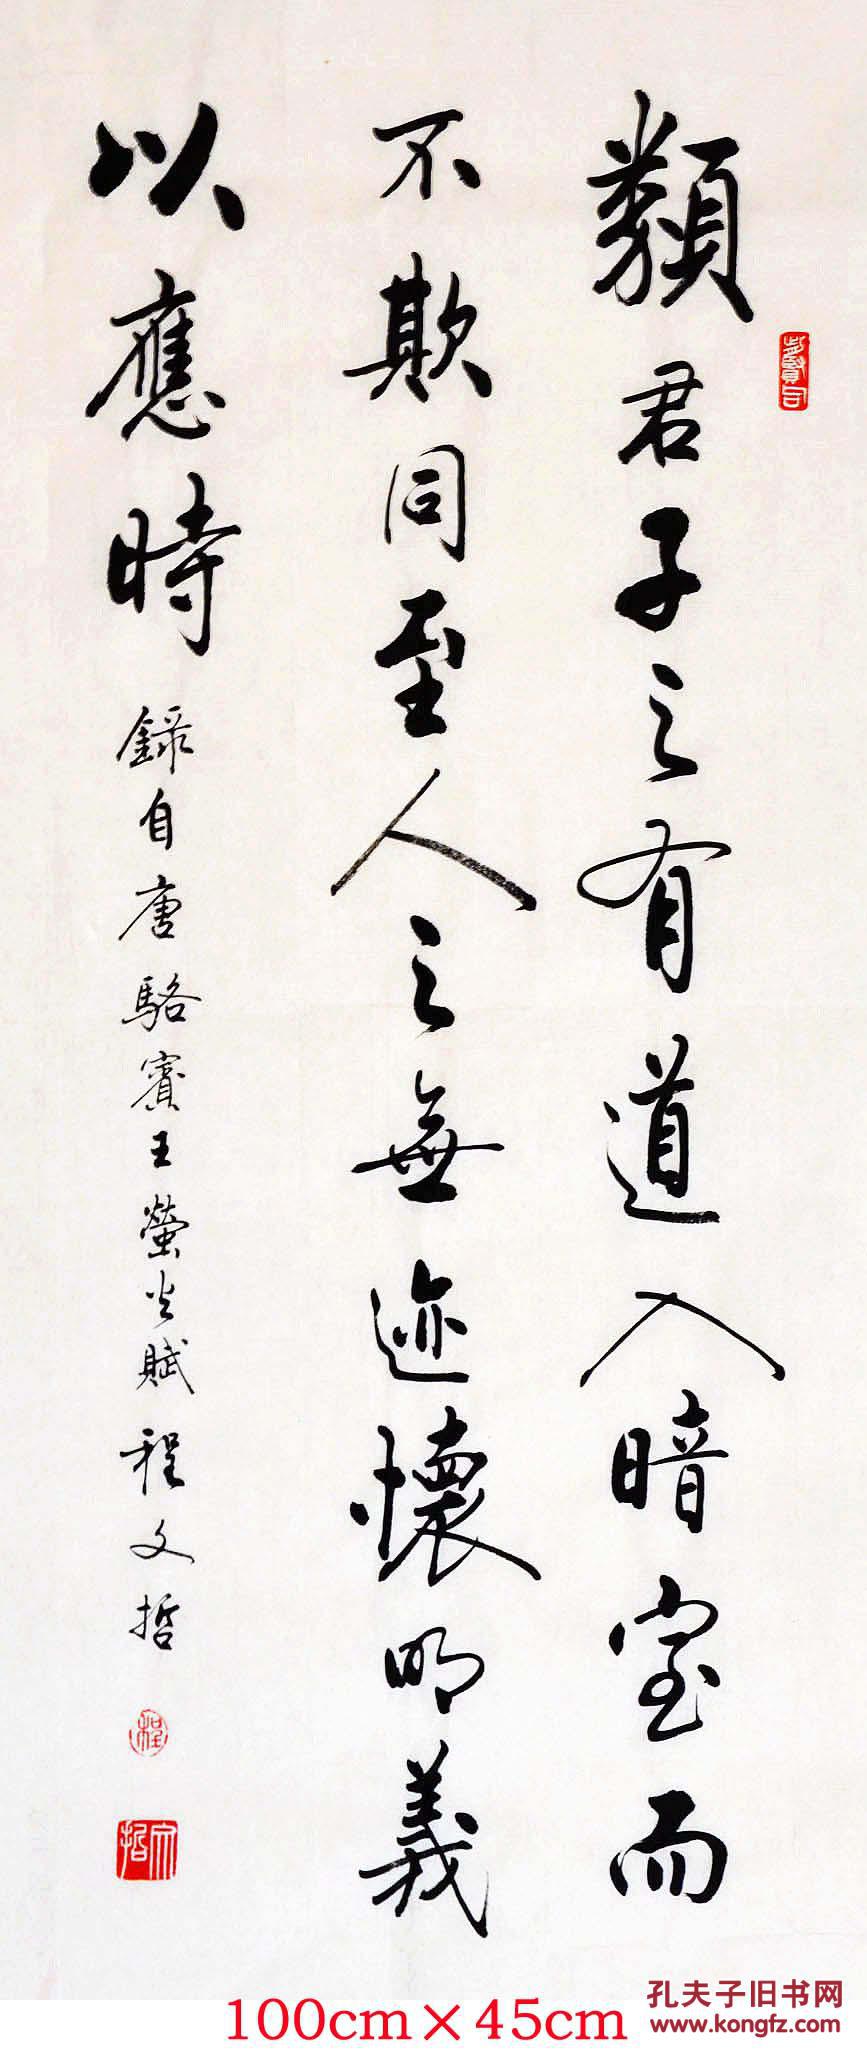 類君子之有道入暗室而
不欺同至人之無迹懷明義
以應時
錄自唐駱賓王螢火賦程文哲
程
文哲
100cm×45cm
孔夫子旧书网
www.kongfz.com